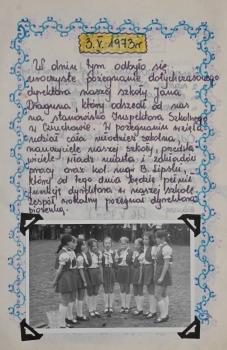 3. V. 1973r
W dniu tym odbyło się
uroczyste pożegnanie dotychczasowego
dyrektora naszej szkoły Jana
Draguna, który odszedł od nas
na stanowisko Inspektora Szkolnego
w Człuchowie. W pożegnaniu wzięła
udział cała młodzież szkolna,
nauczyciele naszej szkoły, przedsta-
wiciele władz miasta i związków
pracy oraz kol. mgr B. Lipski,
który od tego dnia będzie pełnił
funkcję dyrektora w naszej szkole.
Zespół wokalny pożegnał dyrektora
piosenką.